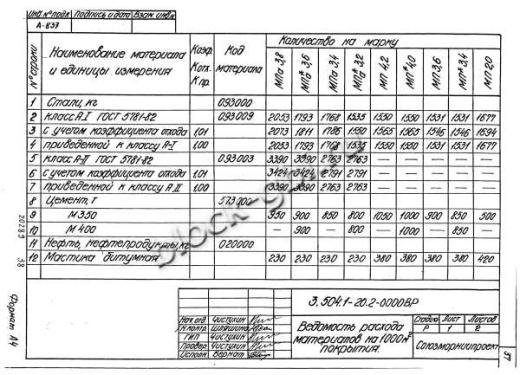 Инв. № подл. Подпись и дата Взам. инв. №
А-837
№ строки Наименование материала и единицы измерения Коэф. Котх. Кпр. Код материала Количество на марку
МПа 3,8 МПа 3,6 МПа 3,4 МПа 3,2 МП 4,2 МП 4,0 МП 3,6 МП 3,4 МП 20
1 Стали, кг 093000
2 класс А-I ГОСТ 5781-82 093009 2053 1793 1768 1535 1550 1550 1531 1531 1677
3 с учетом коэффициента отхода 1.01 2073 1811 1786 1550 1565 1565 1546 1546 1694
4 приведенной к классу А-I 1.00 2053 1793 1768 1535 1550 1550 1531 1531 1677
5 класс А-II ГОСТ 5781-82 093003 3390 3390 2763 2763 — — — — —
6 с учетом коэффициента отхода 1.01 3424 3424 2791 2791 — — — — —
7 приведенной к классу А II 1.00 3390 3390 2763 2763 — — — — —
8 Цемент, т 573000
9 М350 950 900 850 800 1050 1000 900 850 500
10 М400 — 900 — 800 — 1000 — 850 —
11 Нефть, нефтепродукты, кг 020000
12 Мастика битумная 230 230 230 230 380 380 380 380 420
20289 38
3.504.1-20.2-0000ВР
Нач. отд. Чистулин
Н. контр. Шляшина
ГИП Чистулин
Провер. Чистулин
Исполн. Бернат
Ведомость расхода материалов на 1000м² покрытия.
Стадия Лист Листов
Р 1 2
Союзморниипроект
Формат А4